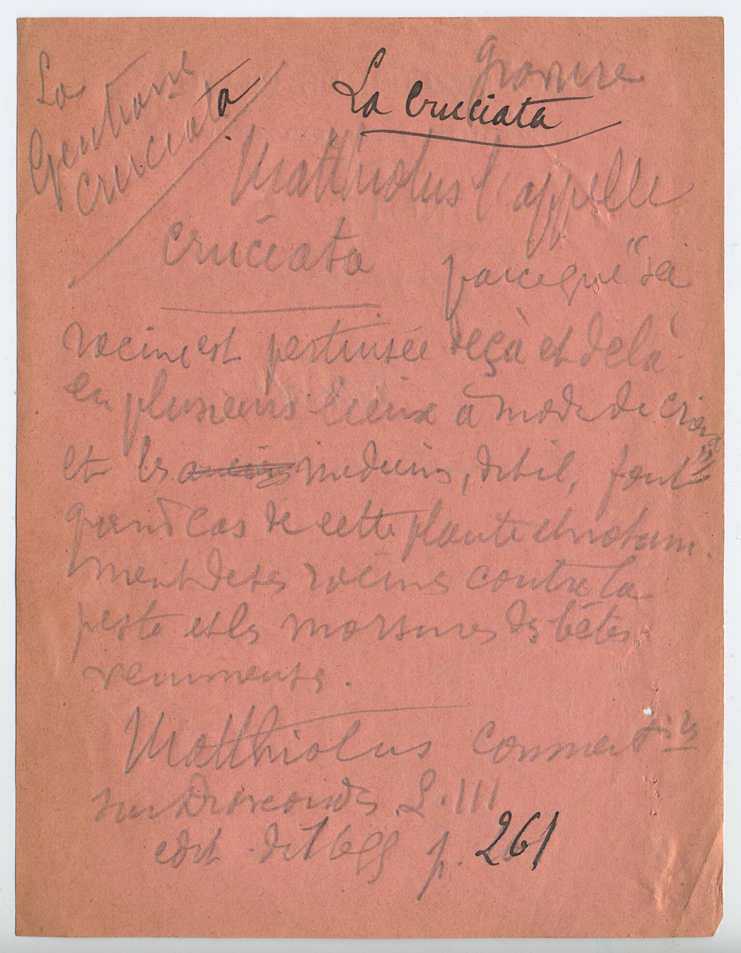 La
Gentiane
cruciata
gravure
La Cruciata
Matthiolus l'appelle
cruciata parceque "sa
racine est pertuisée deçà et delà
en plusieurs lieux à mode de croix"
et les medecins, dit il, font
grand cas de cette plante et notam-
ment de ses racines contre la
peste et les morsures des bêtes
venimeuses.
Matthiolus Comment
sur Dioscorides L. III
edit. de p. 261